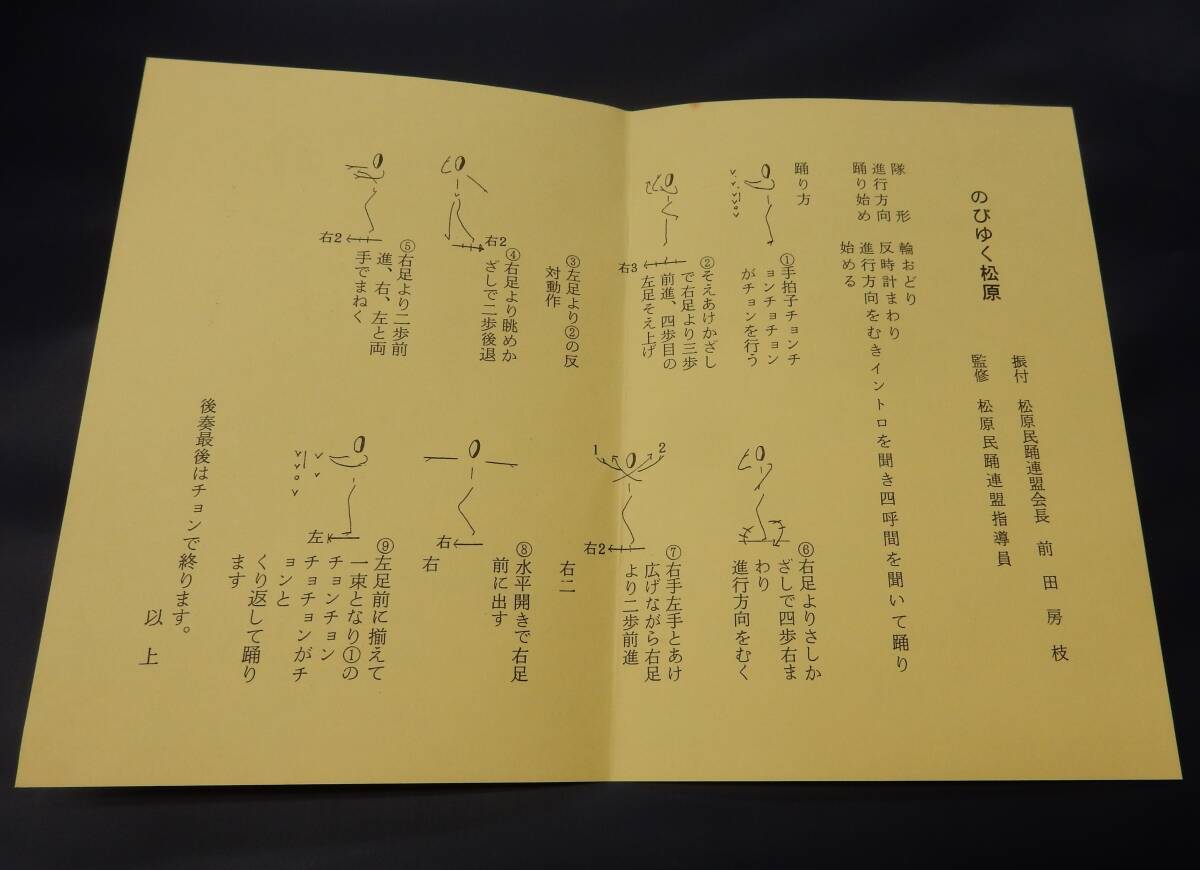 のびゆく松原
振付 松原民踊連盟会長 前田房枝
監修 松原民踊連盟指導員
隊形 輪おどり
進行方向 反時計まわり
踊り始め 進行方向をむきイントロを聞き四呼間を聞いて踊り
始める
踊り方
①手拍子チョンチ
ョンチョチョン
がチョンを行う
②そえあけかざし
で右足より三歩
前進、四歩目の
左足そえ上げ
右3
③左足より②の反
対動作
④右足より眺めか
ざしで二歩後退
右2
⑤右足より二歩前
進、右、左と両
手でまねく
右2
⑥右足よりさしか
ざしで四歩右ま
わり
進行方向をむく
⑦右手左手とあけ
広げながら右足
より二歩前進
1
2
右2
右二
⑧水平開きで右足
前に出す
右
右
⑨左足前に揃えて
一束となり①の
チョンチョン
チョチョンがチ
ョンと
くり返して踊り
ます
左
後奏最後はチョンで終ります。
以上